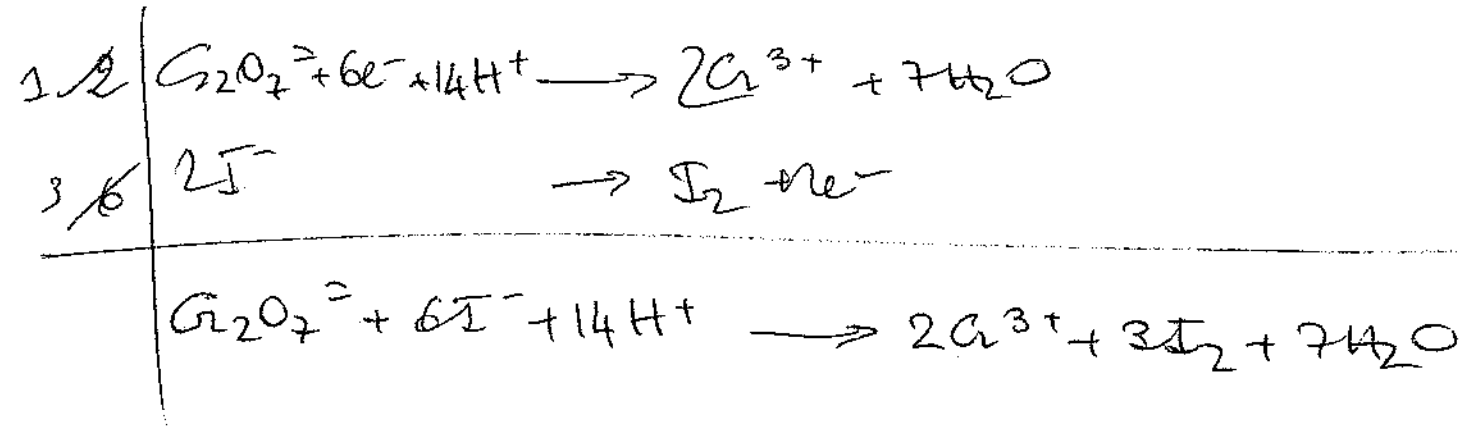 1 2 Cr₂O₇⁼ + 6e⁻ + 14H⁺ ⟶ 2Cr³⁺ + 7H₂O
3 6 2I⁻ → I₂ + 2e⁻
Cr₂O₇⁼ + 6I⁻ + 14H⁺ ⟶ 2Cr³⁺ + 3I₂ + 7H₂O